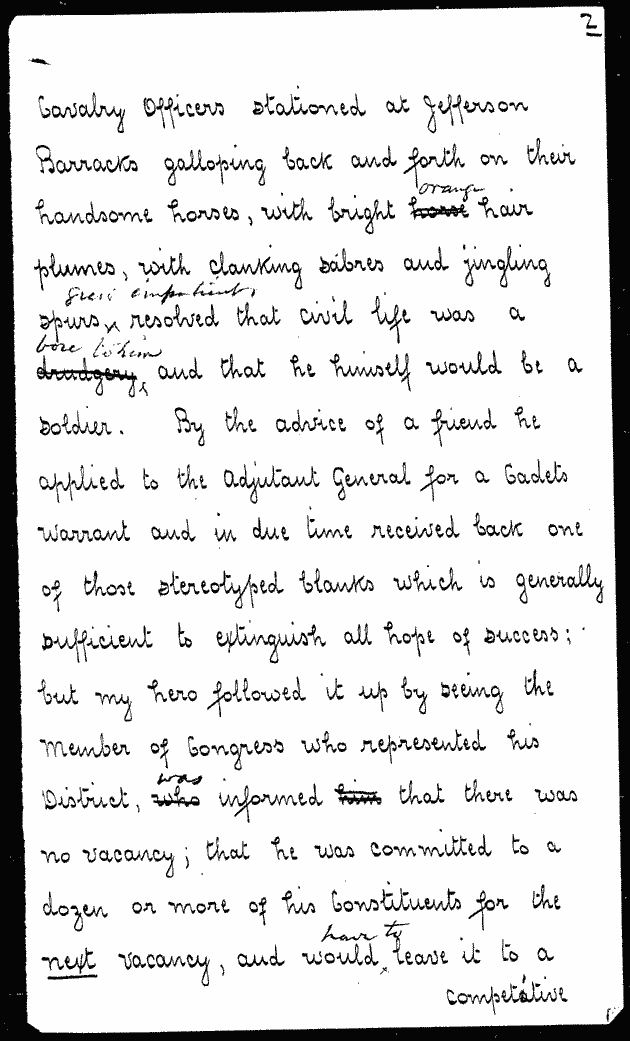 2
Cavalry Officers stationed at Jefferson
Barracks galloping back and forth on their
orange
handsome horses, with bright horse hair
plumes, with clanking sabres and jingling
grew impatient,
spurs, resolved that civil life was a
bore to him
drudgery, and that he himself would be a
soldier. By the advice of a friend he
applied to the Adjutant General for a Cadets
warrant and in due time received back one
of those stereotyped blanks which is generally
sufficient to extinguish all hope of success;
but my hero followed it up by seeing the
Member of Congress who represented his
was
District, who informed him that there was
no vacancy; that he was committed to a
dozen or more of his Constituents for the
have to
next vacancy, and would leave it to a
competative